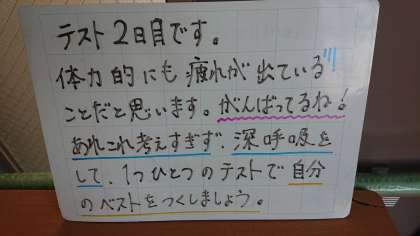 テスト2日目です。
体力的にも疲れが出ている
ことだと思います。がんばってるね！
あれこれ考えすぎず、深呼吸を
して、1つひとつのテストで自分
のベストをつくしましょう。